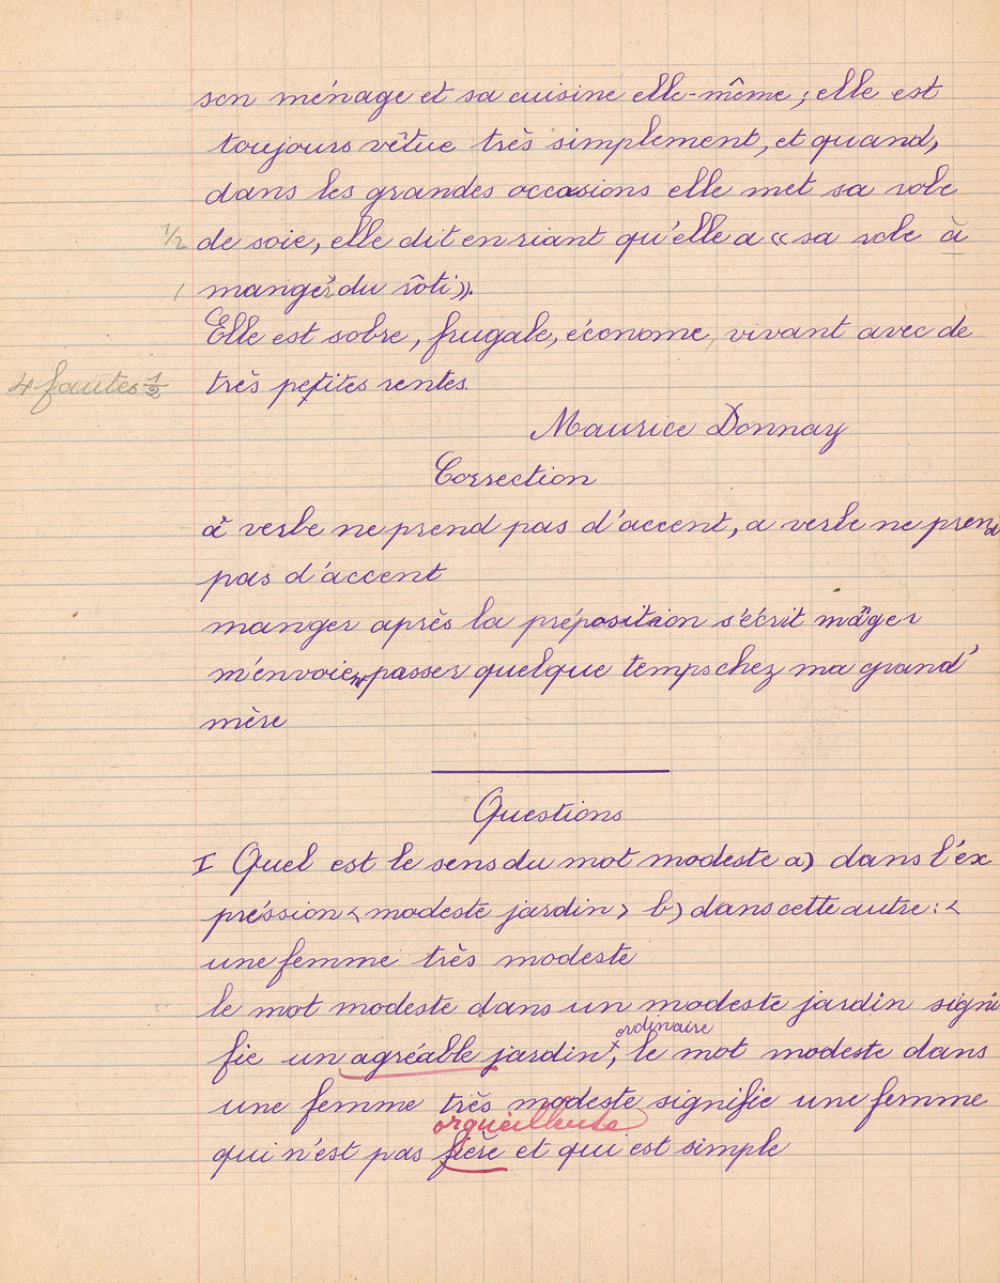 son ménage et sa cuisine elle-même ; elle est
toujours vêtue très simplement, et quand,
dans les grandes occasions elle met sa robe
1/2 de soie, elle dit en riant qu'elle a « sa robe à
1 manger du rôti ».
Elle est sobre, frugale, économe, vivant avec de
4 fautes 1/2 très petites rentes.
Maurice Donnay
Correction
à verbe ne prend pas d'accent, a verbe ne prend
pas d'accent
manger après la préposition s'écrit manger
m'envoient passer quelque temps chez ma grand'
mère
Questions
I Quel est le sens du mot modeste a) dans l'éx
préssion < modeste jardin > b) dans cette autre : <
une femme très modeste
le mot modeste dans un modeste jardin signi
ordinaire
fie un agréable jardin, le mot modeste dans
une femme très modeste signifie une femme
orgueilleuse
qui n'est pas fière et qui est simple